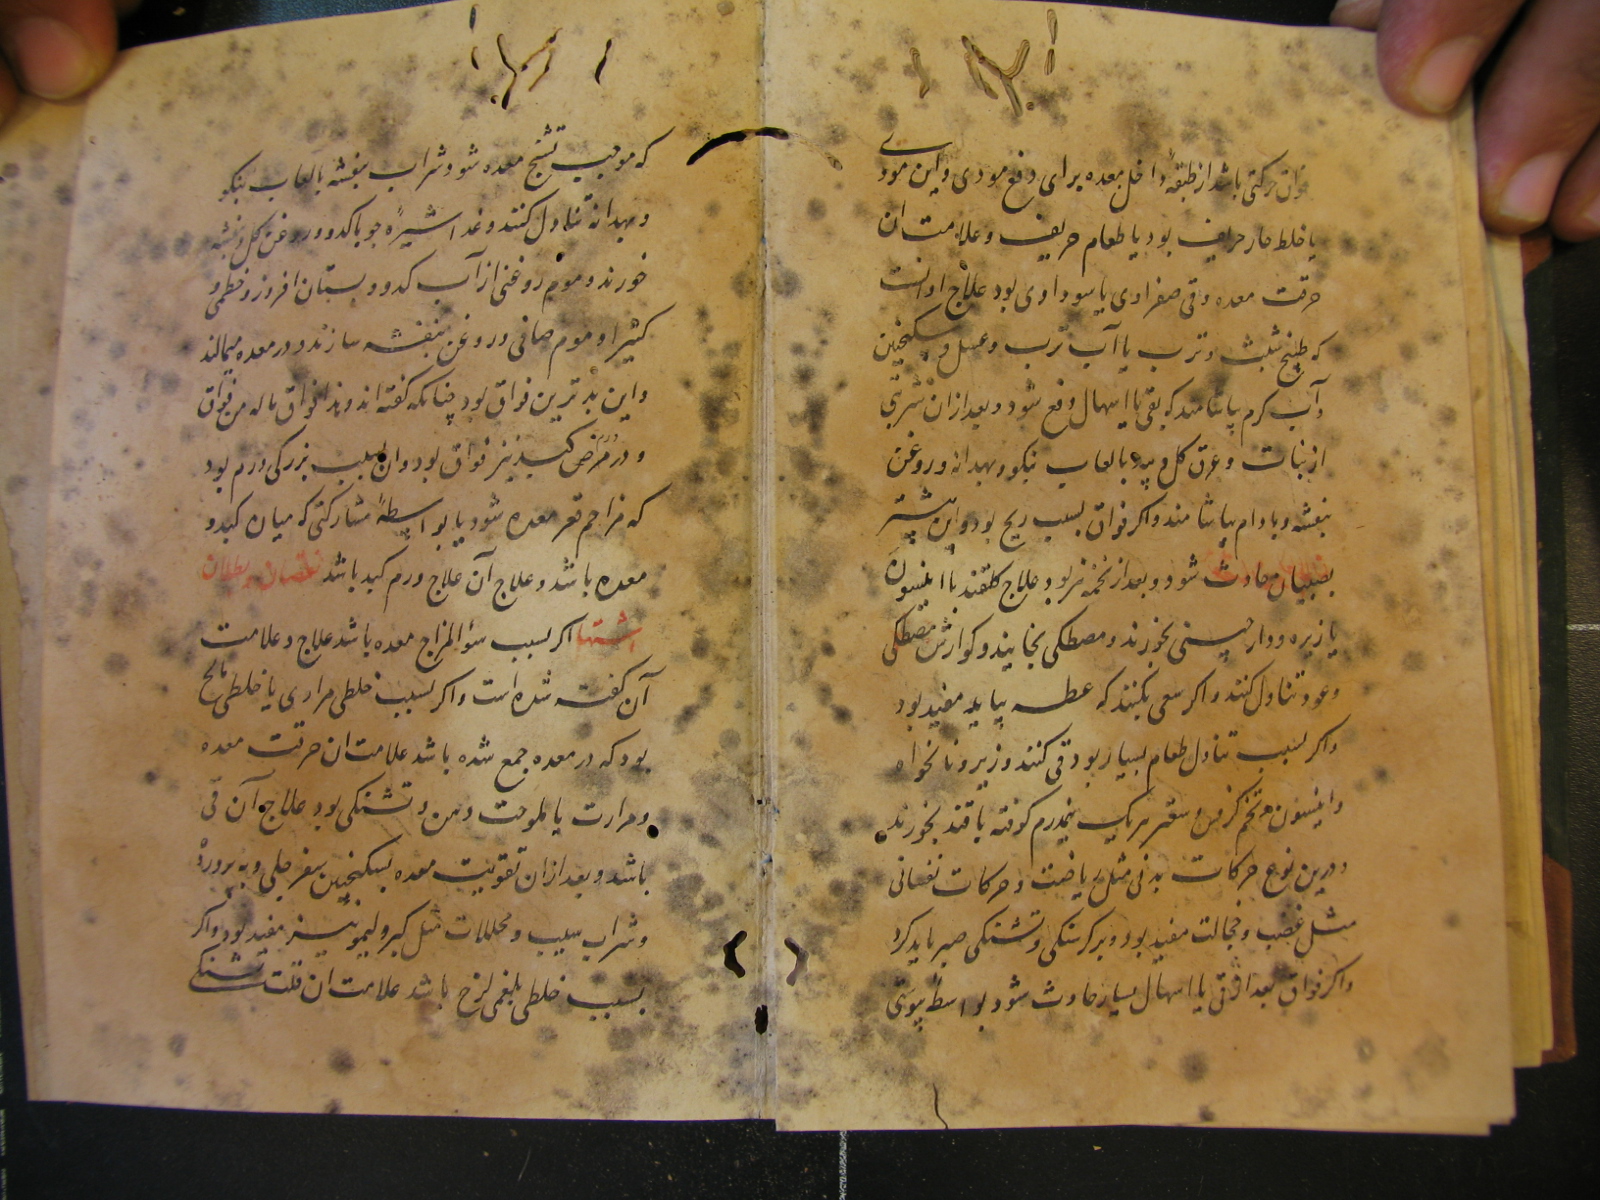 فواق حرکتی باشد از طبقهٔ داخل معده برای دفع موذی و این موذی
یا خلط حار حریف بود یا طعام حریف و علامت ان
حرقت معده و قی صفراوی یا سوداوی بود علاج او انست
که طبیخ شبت و ترب یا آب ترب و عسل و سکنجبین
و آب کرم بیاشامند که بقی یا اسهال دفع شود و بعد از ان شربتی
از نبات و عرق کل و بید بالعاب نیکو و بهدانه و روغن
بنفشه و بادام بیاشامند و اکر فواق بسبب ریح بود و این بیشتر
بصبیان حادث شود و بعد از تخمه نیز بود علاج کلقند با انیسون
یا زیره و دارچینی بخورند و مصطکی بخایند و کوارش مصطکی
و عود تناول کنند و اکر سعی بکنند که عطسه بیاید مفید بود
و اکر بسبب تناول طعام بسیار بود قی کنند و زیره و نانخواه
و انیسون و تخم کرفس و سعتر هر یک نیمدرم کوفته با قند بخورند
و درین نوع حرکات بدنی مثل ریاضت و حرکات نفسانی
مثل غضب و خجالت مفید بود و بر کرسنکی و تشنکی صبر باید کرد
و اکر فواق بعد از قی یا اسهال بسیار حادث شود بواسطهٔ یبوستی
که موجب تشنج معده شود شراب بنفشه بالعاب نیکو
و بهدانه تناول کنند و غذا شیرهٔ جو با کدو و روغن کل و بنفشه
خورند و موم روغنی از آب کدو و بستان افروز و خطمی و
کثیرا و موم صافی و روغن بنفشه سازند و در معده میمالند
و این بدترین فواق بود چنانکه کفته اند و ذا فواق ماله من فواق
و در مرض کبد نیز فواق بود و ان بسبب بزرکی ورم بود
که مزاحم قعر معده شود یا بواسطهٔ مشارکتی که میان کبد و
معده باشد و علاج آن علاج ورم کبد باشد نقصان و بطلان
اشتها اکر بسبب سؤ المزاج معده باشد علاج و علامت
آن کفته شده است و اکر بسبب خلطی مراری یا خلطی مالح
بود که در معده جمع شده باشد علامت ان حرقت معده
و مرارت یا ملوحت دهن و تشنکی بود علاج آن قی
باشد و بعد از ان تقویت معده بسکنجبین سفرجلی و به پرورده
و شراب سیب و محللات مثل کبر و لیمو نیز مفید بود و اکر
بسبب خلطی بلغمی لزج باشد علامت ان قلت تشنکی